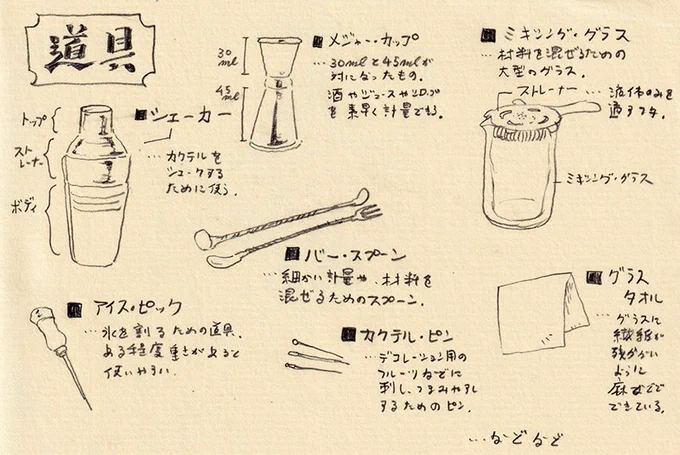 道具
トップ
ストレーナー
ボディ
■シェーカー
…カクテルを
シェークする
ために使う.
30ml
45ml
■メジャー・カップ
…30mlと45mlが
対になったもの.
酒やジュースやシロップ
を素早く計量できる.
■ミキシング・グラス
…材料を混ぜるための
大型のグラス.
ストレーナー
…液体のみを
通すフタ.
ミキシング・グラス
■バー・スプーン
…細かい計量や、材料を
混ぜるためのスプーン.
■アイス・ピック
…氷を割るための道具.
ある程度重さがあると
使いやすい.
■カクテル・ピン
…デコレーション用の
フルーツなどに
刺し、つまみやすく
するためのピン.
■グラス
タオル
…グラスに
繊維が
残らない
ように
麻などで
できている.
…などなど